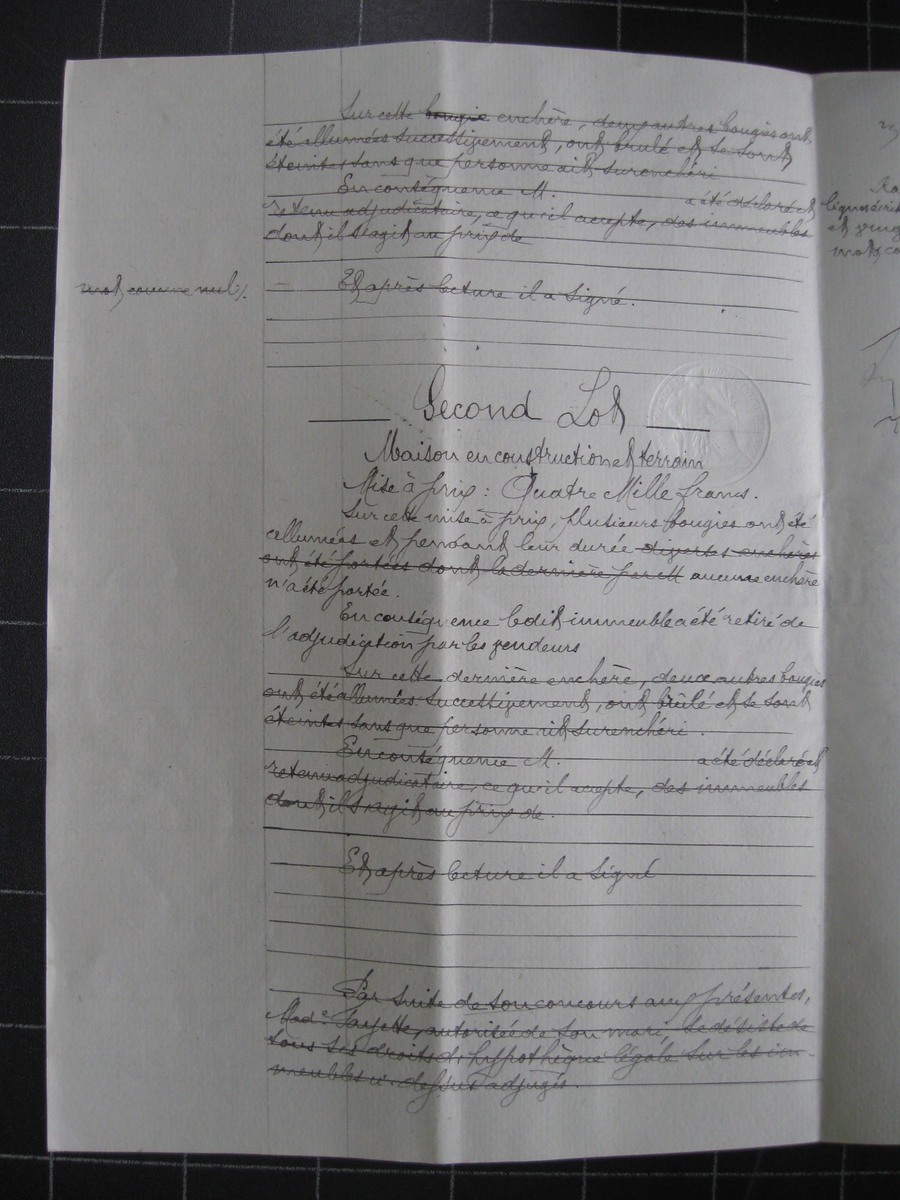 Sur cette bougie enchère, deux autres bougies ont
été allumées successivement, ont brulé et se sont
éteintes sans que personne ait surenchéri
En conséquence M. a été déclaré et
retenu adjudicataire, ce qu'il acepte, des immeubles
dont il s'agit au prix de
mot comme nul /.
Et après lecture il a signé.
Second Lot
Maison en construction et terrain
Mise à prix : Quatre Mille francs.
Sur cette mise à prix, plusieurs bougies ont été
allumées et pendant leur durée diverses enchères
ont été portées dont la dernière par M aucune enchère
n'a été portée.
En conséquence ledit immeuble a été retiré de
l'adjudication par les vendeurs
Sur cette dernière enchère, deux autres bougies
ont été allumées successivement, ont brûlé et se sont
éteintes sans que personne ait surenchéri.
En conséquence M. a été déclaré et
retenu adjudicataire, ce qu'il acepte, des immeubles
dont il s'agit au prix de.
Et après lecture il a signé
Par suite de son concours aux présentes,
Mad.e Fayette, autorisée de son mari se désiste de
tous ses droits d'hypothèque légale sur les im-
meubles ci-dessus adjugés.
et